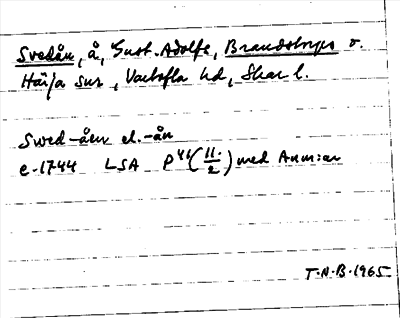 Svedån, å, Gust. Adolfs, Brandstorps o.
Härja snr, Vartofta hd, Skar l.
Swed-åen el. -ån
e. 1744 LSA P41 (11/2) med Anm:ar
T.A.B. 1965